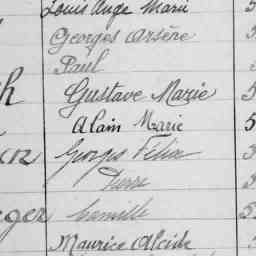 Louis Ange Marie
Georges Arsène
Paul
Gustave Marie
Alain Marie
Georges Félix
Pierre
Camille
Maurice Alcide